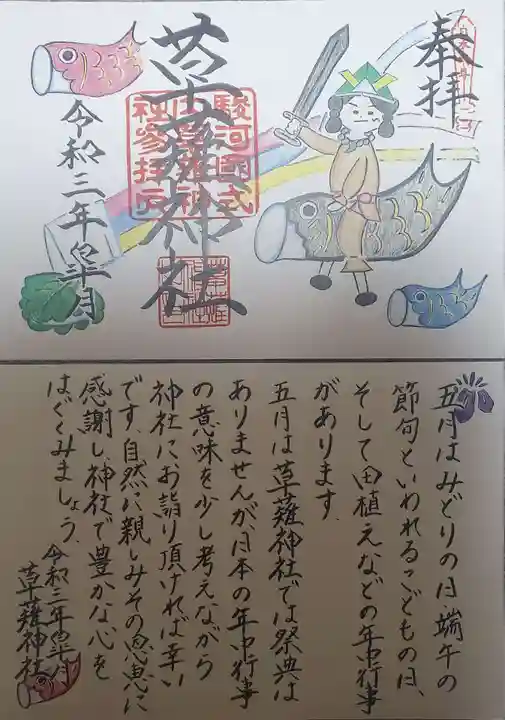 奉拝
草薙神社
令和三年皐月
駿河國式
内草薙神
社参拝
五月はみどりの日、端午の
節句といわれるこどもの日、
そして田植えなどの年中行事
があります。
五月は草薙神社では祭典は
ありませんが、日本の年中行事
の意味を少し考えながら
神社にお詣り頂ければ幸い
です。自然に親しみその恩恵に
感謝し神社で豊かな心を
はぐくみましょう。
令和三年皐月
草薙神社